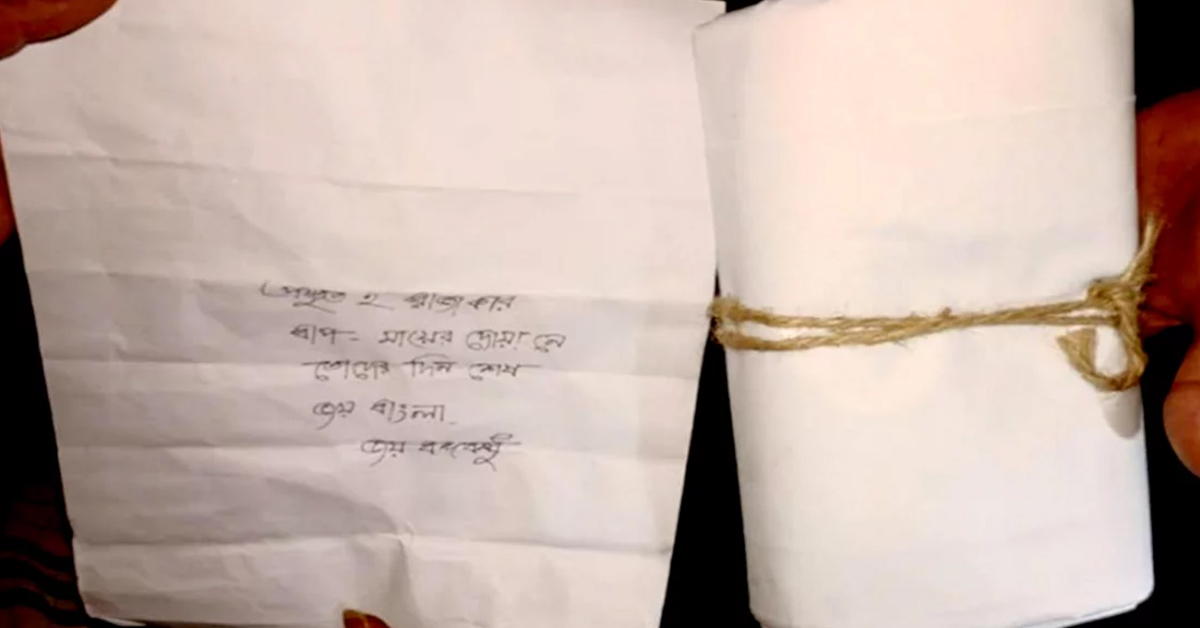 প্রস্তুত হ রাজাকার
বাপ-মায়ের দোয়া নে
তোদের দিন শেষ
জয় বাংলা
জয় বঙ্গবন্ধু